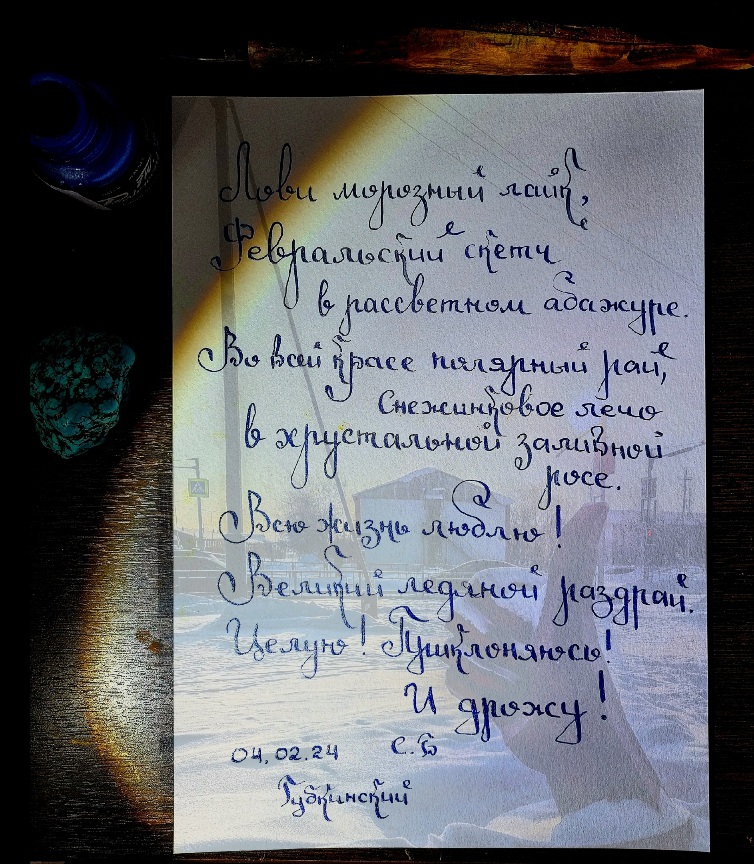 Лови морозный лайк,
Февральский скетч
в рассветном абажуре.
Во всей красе полярный рай,
Снежинковое лечо
в хрустальной заливной
росе.
Всю жизнь люблю!
Великий ледяной раздрай.
Целую! Пушклоняюсь!
И дрожу!
04.02.24 С.Б
Губкинский